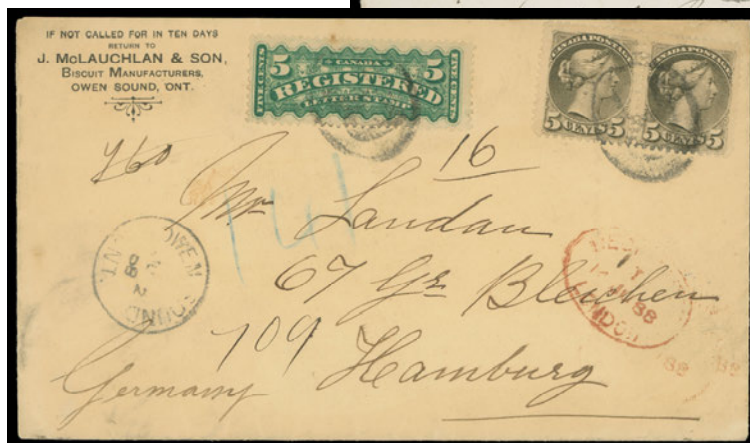 IF NOT CALLED FOR IN TEN DAYS
RETURN TO
J. MCLAUCHLAN & SON,
BISCUIT MANUFACTURERS,
OWEN SOUND, ONT.
5 CANADA 5
FIVE CENTS REGISTERED FIVE CENTS
LETTER STAMP
CANADA POSTAGE
5 CENTS 5
CANADA POSTAGE
5 CENTS 5
160
16
141
Mr Landau
67 Gr Bleichen
109 Hamburg
Germany
OWEN SOUND ONT.
2 88
88
LONDON